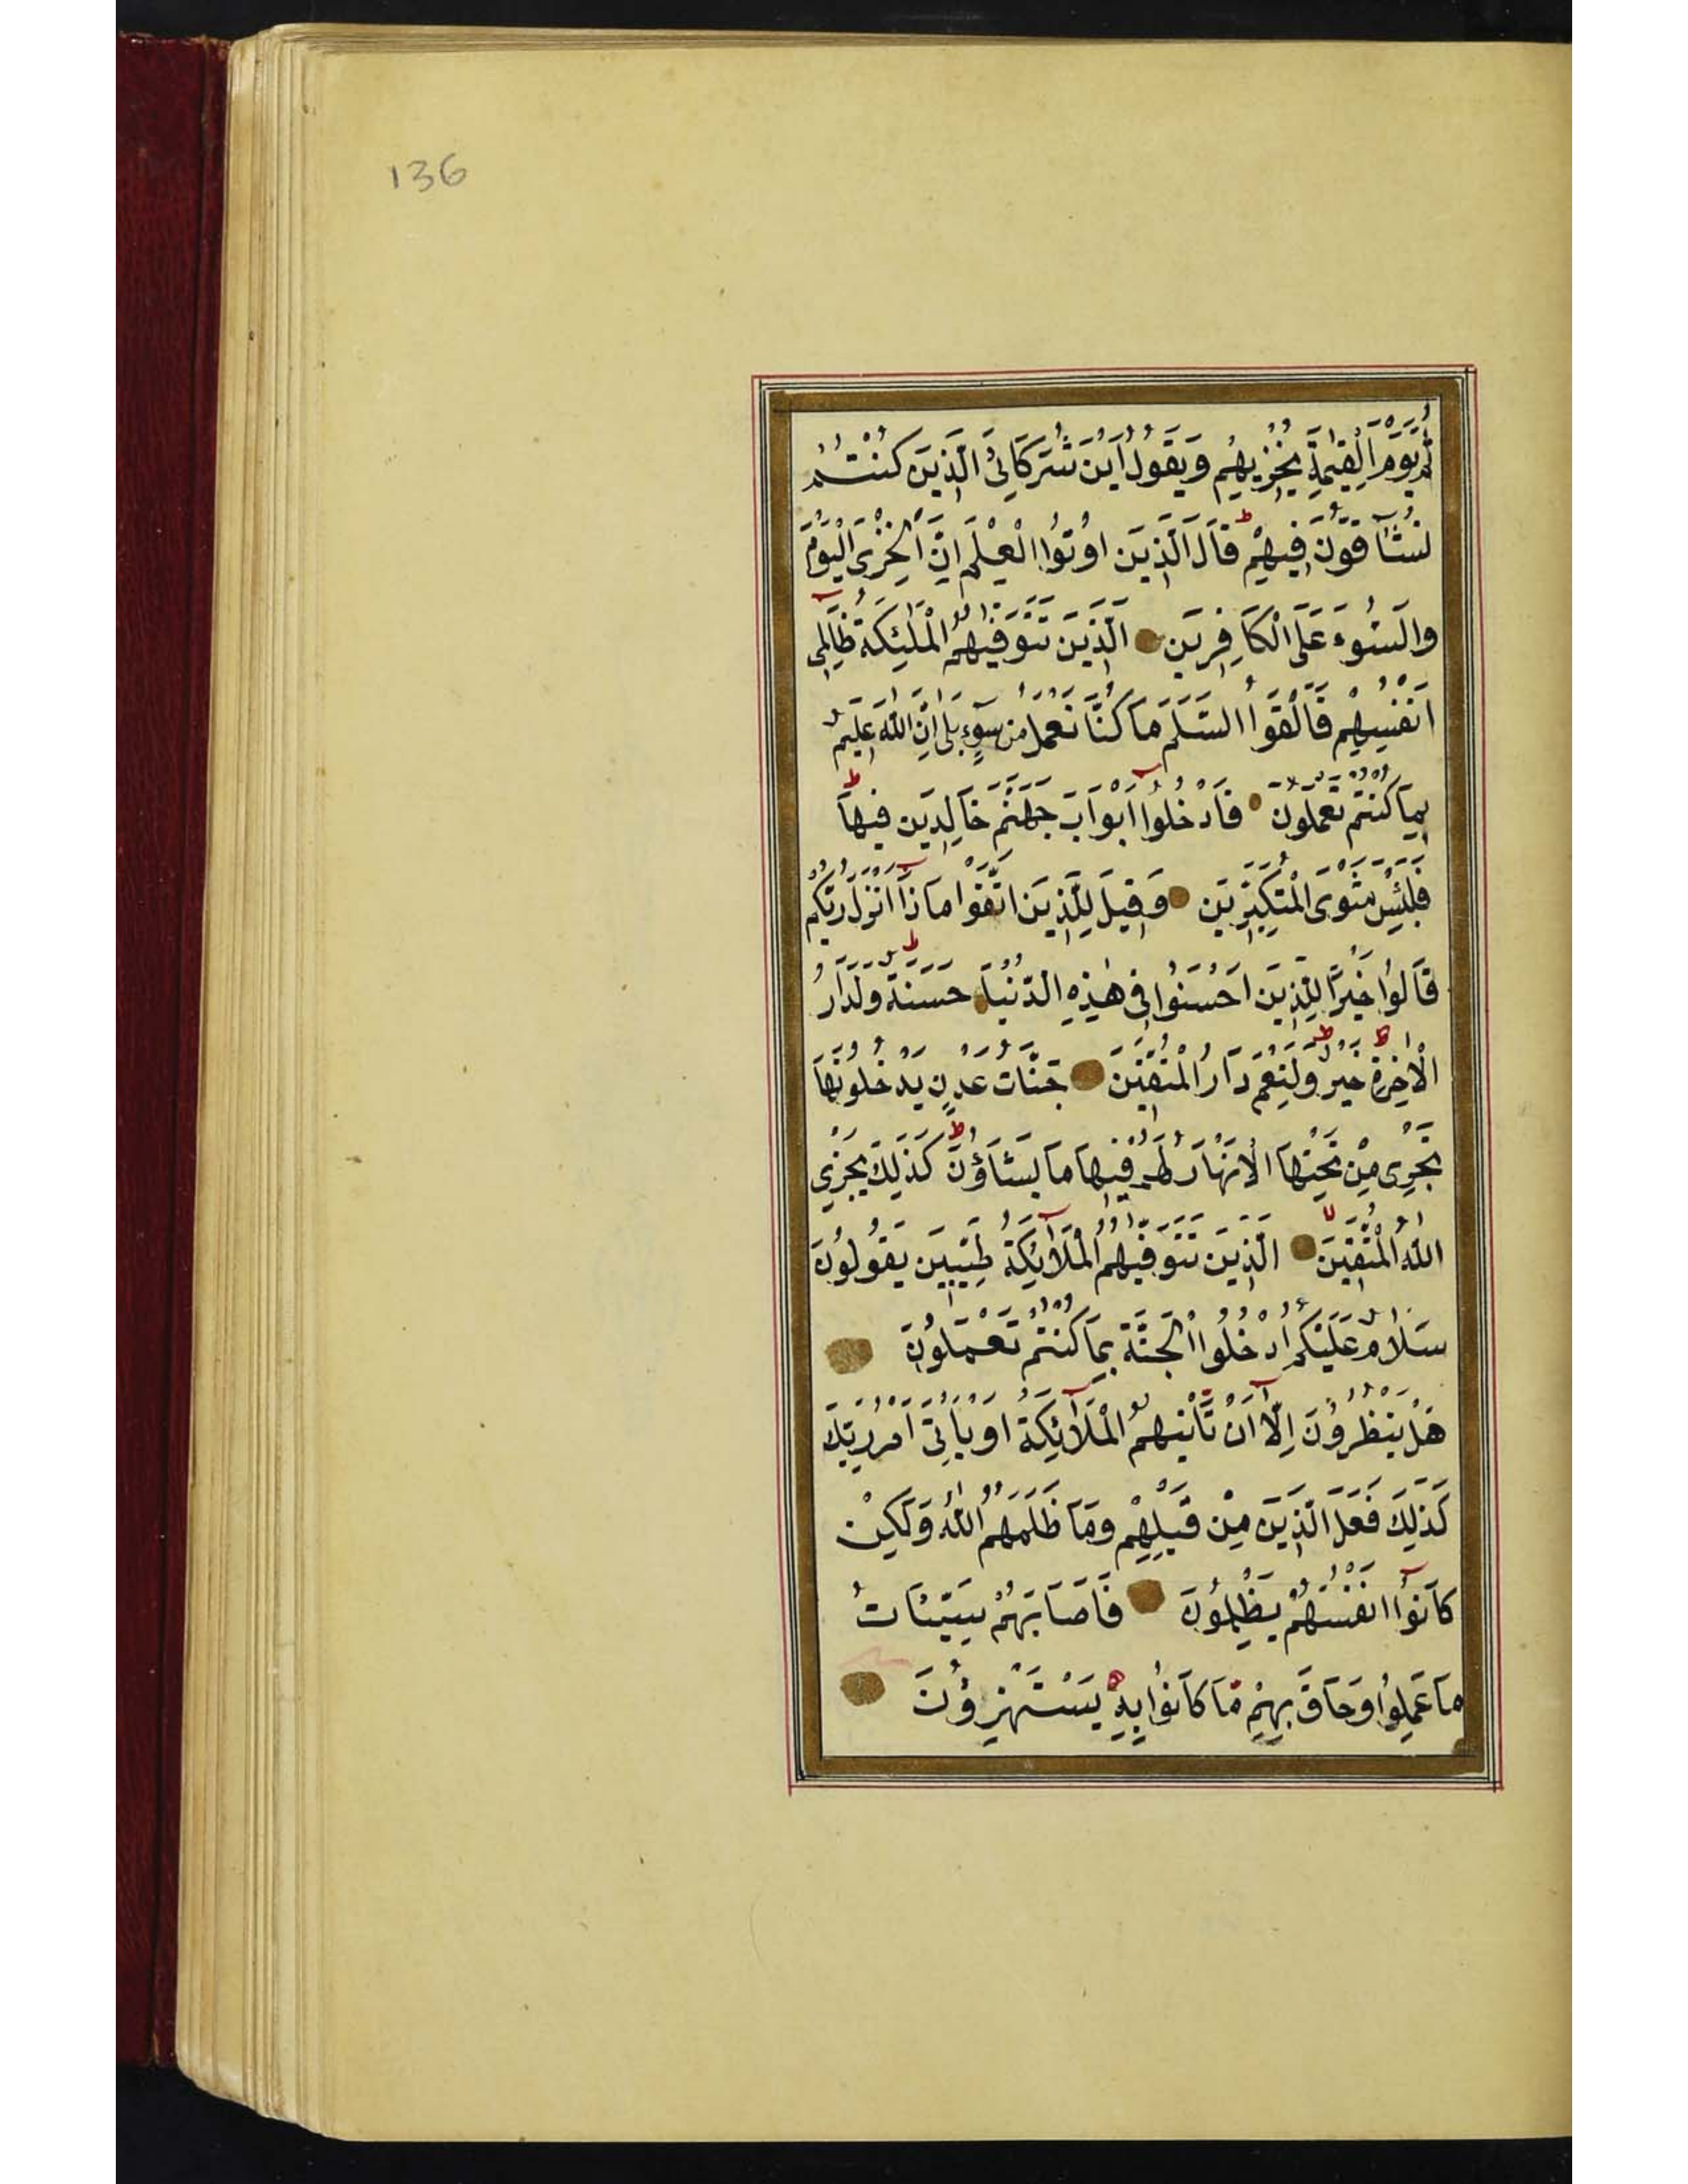 136
ثُمَّ يَوْمَ الْقِيٰمَةِ يُخْزِيهِمْ وَيَقُولُ اَيْنَ شُرَكَائِيَ الَّذِينَ كُنْتُمْ
تُشَآقُّونَ فِيهِمْ ط قَالَ الَّذِينَ اُوتُوا الْعِلْمَ اِنَّ الْخِزْيَ الْيَوْمَ
وَالسُّوءَ عَلَى الْكَافِرِينَ الَّذِينَ تَتَوَفّٰيهُمُ الْمَلٰئِكَةُ ظَالِمِي
اَنْفُسِهِمْ فَاَلْقَوُا السَّلَمَ مَا كُنَّا نَعْمَلُ مِنْ سُوٓءٍ بَلٰى اِنَّ اللّٰهَ عَلِيمٌ
بِمَا كُنْتُمْ تَعْمَلُونَ فَادْخُلُوا اَبْوَابَ جَهَنَّمَ خَالِدِينَ فِيهَا ط
فَلَبِئْسَ مَثْوَى الْمُتَكَبِّرِينَ وَقِيلَ لِلَّذِينَ اتَّقَوْا مَاذَا اَنْزَلَ رَبُّكُمْ
قَالُوا خَيْرًا لِلَّذِينَ اَحْسَنُوا فِي هٰذِهِ الدُّنْيَا حَسَنَةٌ ط وَلَدَارُ
الْاٰخِرَةِ خَيْرٌ ط وَلَنِعْمَ دَارُ الْمُتَّقِينَ جَنَّاتُ عَدْنٍ يَدْخُلُونَهَا
تَجْرِي مِنْ تَحْتِهَا الْاَنْهَارُ لَهُمْ فِيهَا مَا يَشَاؤُنَ ط كَذٰلِكَ يَجْزِي
اللّٰهُ الْمُتَّقِينَ لا الَّذِينَ تَتَوَفّٰيهُمُ الْمَلَآئِكَةُ طَيِّبِينَ يَقُولُونَ
سَلَامٌ عَلَيْكُمُ ادْخُلُوا الْجَنَّةَ بِمَا كُنْتُمْ تَعْمَلُونَ
هَلْ يَنْظُرُونَ اِلَّآ اَنْ تَأْتِيَهُمُ الْمَلَآئِكَةُ اَوْ يَأْتِيَ اَمْرُ رَبِّكَ
كَذٰلِكَ فَعَلَ الَّذِينَ مِنْ قَبْلِهِمْ وَمَا ظَلَمَهُمُ اللّٰهُ وَلٰكِنْ
كَانُوٓا اَنْفُسَهُمْ يَظْلِمُونَ فَاَصَابَهُمْ سَيِّئَاتُ
مَا عَمِلُوا وَحَاقَ بِهِمْ مَا كَانُوا بِهِ يَسْتَهْزِؤُنَ